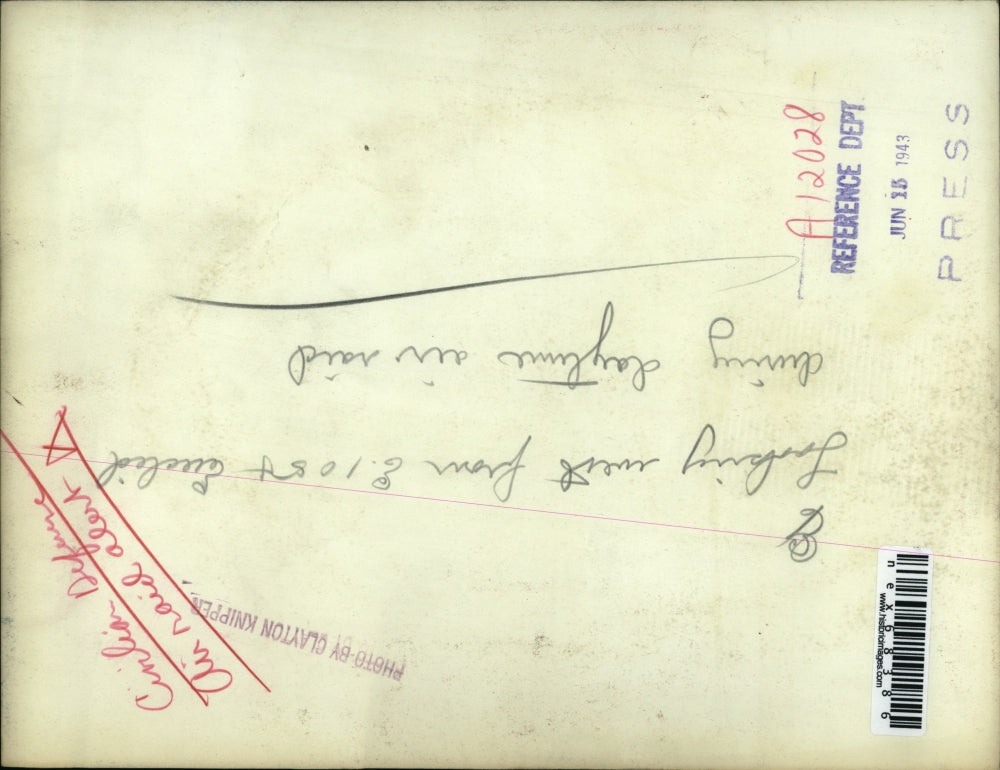 A12028
REFERENCE DEPT.
JUN 15 1943
PRESS
Looking west from E. 105th Euclid
during daytime air raid
Civilian Defense
Air raid alert
PHOTO BY CLAYTON KNIPPER
nex68386
www.historicimages.com